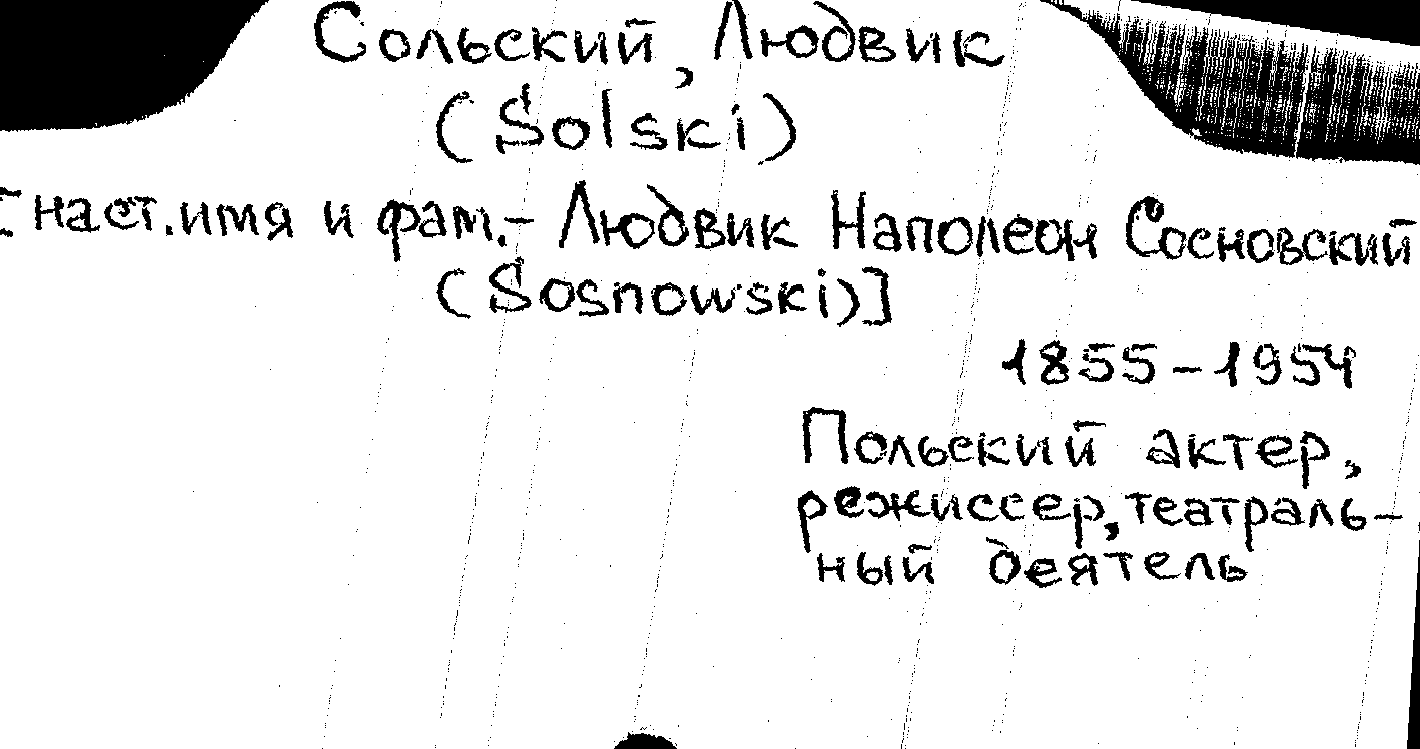 Сольский, Людвик
(Solski)
[наст.имя и фам.- Людвик Наполеон Сосновский
(Sosnowski)]
1855-1954
Польский актер,
режиссер, театраль-
ный деятель